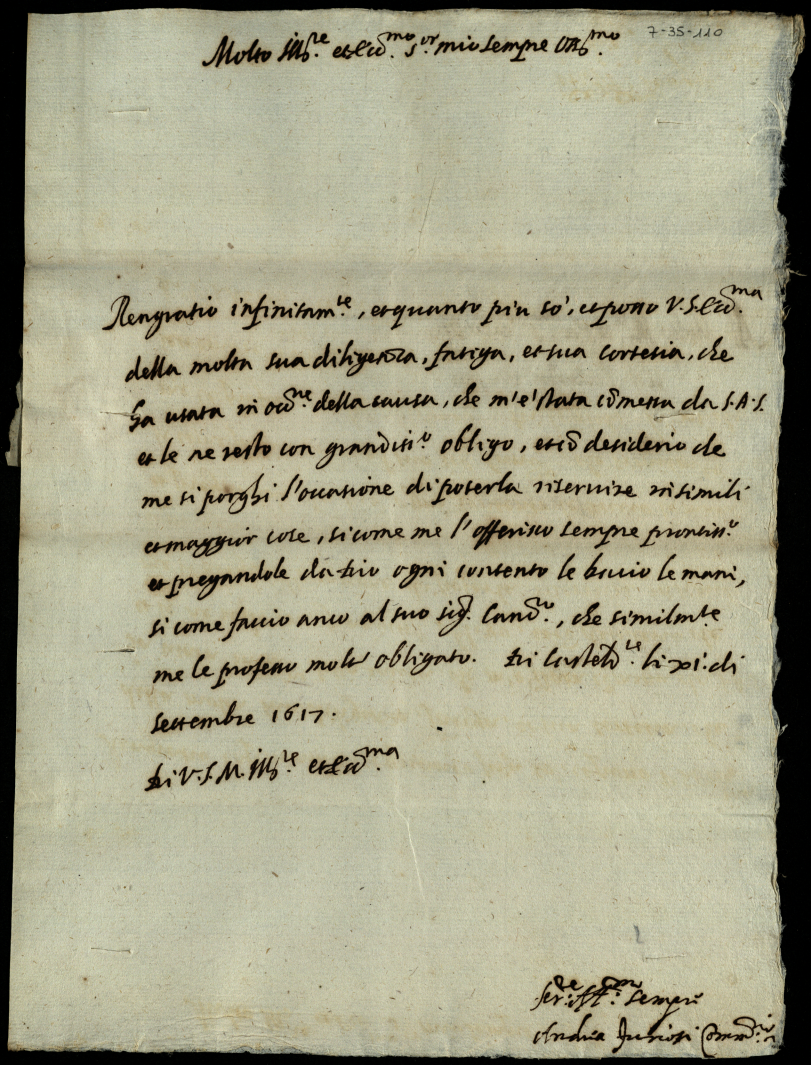 7-35-110
Molto Ill.re et ecc.mo S.or mio sempre oss.mo
Rengratio infinitam.te, et quanto piu sò, et posso V.S. ecc.ma
della molta sua diligenza, fatiga, et sua cortesia, che
ha usata in occ.ne della causa, che m'è stata comessa da S.A.S.
et le ne resto con grandiss.o obligo, et cō desiderio che
me si porghi l'occasione di poterla riservire in simili
et maggior cose, si come me l'offerisco sempre prontiss.o
et pregandole da Dio ogni contento le baccio le mani,
si come faccio anco al suo sig.r Canc.ro, che similm.te
me le professo molto obligato. Di Casteld.te li xi. di
settembre 1617.
Di V.S.M. Ill.re et ecc.ma
Ser.re Aff.mo sempre
Andrea